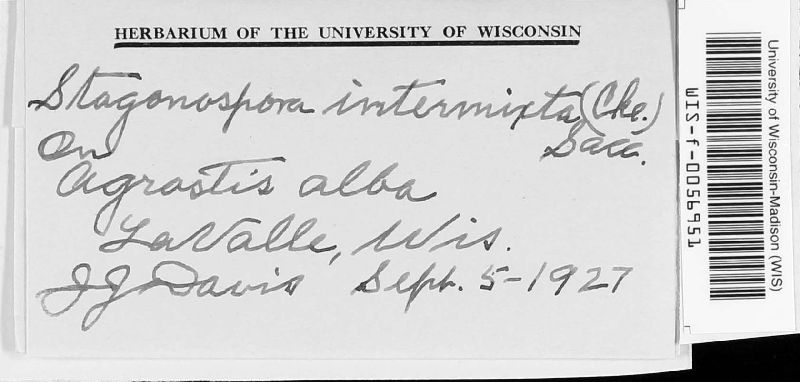 HERBARIUM OF THE UNIVERSITY OF WISCONSIN
Stagonospora intermixta (Cke.)
Sacc.
On
Agrostis alba
LaValle, Wis.
JJ Davis Sept. 5-1927
University of Wisconsin-Madison (WIS)
WIS-f-0056951